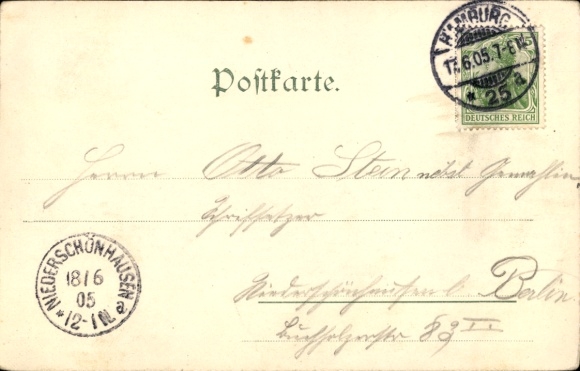 HAMBURG
17.6.05.7-8N.
* 25 a
5
DEUTSCHES REICH
Postkarte.
Herrn Otto Stein nebst Gemahlin,
Schriftsetzer
NIEDERSCHÖNHAUSEN a
18/6
05
*12-1N.
Niederschönhausen b. Berlin
Buchholzerstr